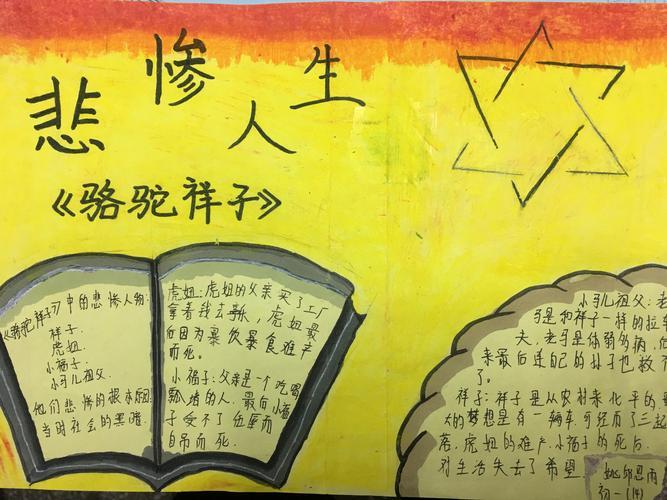 悲惨人生
《骆驼祥子》
《骆驼祥子》中的悲惨人物:
祥子.
虎妞.
小福子.
小马儿祖父.
他们悲惨的根本原因:
当时社会的黑暗.
虎妞:虎妞的父亲卖了工厂
拿着钱去享乐,虎妞最
后因为暴饮暴食难产
而死。
小福子:父亲是一个吃喝
嫖赌的人,最后小福
子受不了
自吊而死.
小马儿祖父:老
马是和祥子一样的拉车
夫,老马是体弱多病,
来最后连自己的孙子也救
了。
祥子:祥子是从农村来北平的,最
大的梦想是有一辆车,可经历了三起
落,虎妞的难产,小福子的死后,
对生活失去了希望
初一(14)